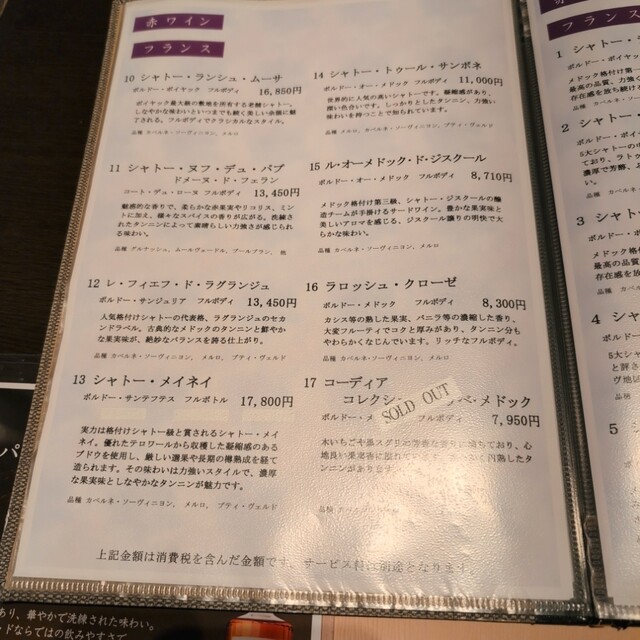 赤ワイン
フランス
10 シャトー・ランシュ・ムーサ
ボルドー・ポイヤック フルボディ 16,850円
ポイヤック最大級の敷地を所有する老舗シャトー。
しなやかな味わいといつまでも続く美しい余韻に魅
了される。フルボディでクラシカルなスタイル。
品種 カベルネ・ソーヴィニヨン、メルロ
11 シャトー・ヌフ・デュ・パプ
ドメーヌ・ド・フェラン
コート・デュ・ローヌ フルボディ 13,450円
魅惑的な香りで、柔らかな赤果実やリコリス、ミン
トに加え、様々なスパイスの香りが広がる。洗練さ
れたタンニンによって素晴らしい力強さが感じられ
る味わい。
品種 グルナッシュ、ムールヴェードル、プールブラン、他
12 レ・フィエフ・ド・ラグランジュ
ボルドー・サンジュリア フルボディ 13,450円
人気格付けシャトーの代表格、ラグランジュのセカ
ンドラベル。古典的なメドックのタンニンと鮮やか
な果実味が、絶妙なバランスを誇る仕上がり。
品種 カベルネ・ソーヴィニヨン、メルロ、プティ・ヴェルド
13 シャトー・メイネイ
ボルドー・サンテフテス フルボトル 17,800円
実力は格付けシャトー級と賞されるシャトー・メイ
ネイ。優れたテロワールから収穫した凝縮感のある
ブドウを使用し、厳しい選果や長期の樽熟成を経て
造られます。その味わいは力強いスタイルで、濃厚
な果実味としなやかなタンニンが魅力です。
品種 カベルネ・ソーヴィニヨン、メルロ、プティ・ヴェルド
14 シャトー・トゥール・サンボネ
ボルドー・オー・メドック フルボディ 11,000円
世界的に人気の高いシャトーです。凝縮感があり、
深い色合いです。しっかりとしたタンニン、力強い
味わいを持つことで知られています。
品種 メルロ、カベルネ・ソーヴィニヨン、プティ・ヴェルド
15 ル・オーメドック・ド・ジスクール
ボルドー・オー・メドック フルボディ 8,710円
メドック格付け第三級、シャトー・ジスクールの醸
造チームが手掛けるサードワイン。豊かな果実味と
美しいアロマを感じる、ジスクール譲りの明快で大
らかな味わい。
品種 カベルネ・ソーヴィニヨン、メルロ
16 ラロッシュ・クローゼ
ボルドー・メドック フルボディ 8,300円
カシス等の熟した果実、バニラ等の濃縮した香り、
大変フルーティでコクと厚みがあり、タンニン分も
やわらかくなじんでいます。リッチなフルボディ。
品種 カベルネ・ソーヴィニヨン、メルロ
17 コーディア
コレクシ ・メドック
SOLD OUT
ボルドー・メ フルボディ 7,950円
木いちごや
地良い果実香に
タンニンがあります
品種 カベルネ・ソーヴィニヨン、メルロ
上記金額は消費税を含んだ金額です。サービス料は別途となります。
赤ワイン
フランス
1 シャトー・
ボルドー・ポイヤ
メドック格付け第一
最高の品質、力強く
存在感を放ち続け
2 シャトー
ボルドー・ポイ
5大シャトーの中
ており、ラトゥ
濃厚で芳醇、
い。
3 シャト
ボルドー・
メドック格
最高の品質
存在感を放
4 シャ
5大シャ
と評さ
ヴ地に
5
パ
あり、華やかで洗練された味わい。
ドならではの飲みやすさで